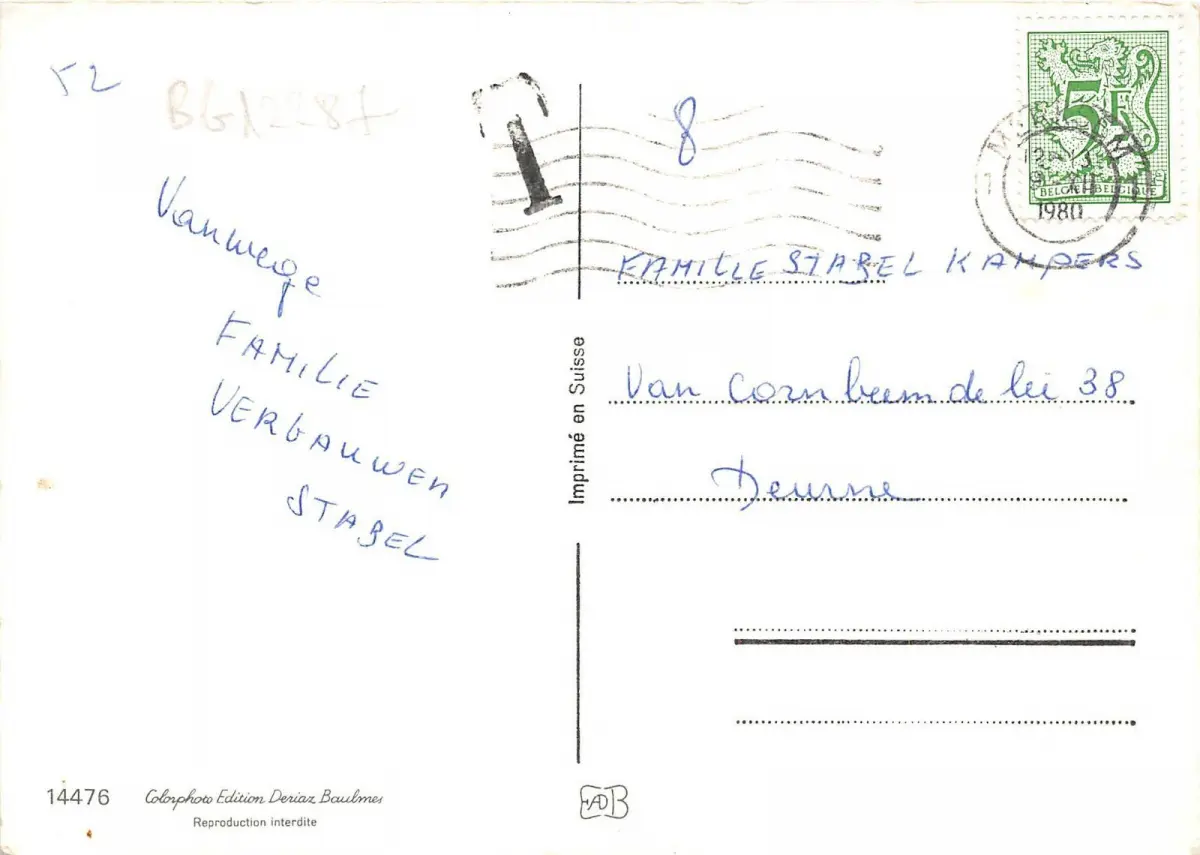 52
BG12287
T
8
5F
BELGIË-BELGIQUE
1980
Vanwege
FAMILIE
VERGAUWEN
STABEL
FAMILLE STABEL KAMPERS
Van Cornbeemdelei 38
Deurne
Imprimé en Suisse
14476 Colorphoto Edition Deriaz Baulmes
Reproduction interdite